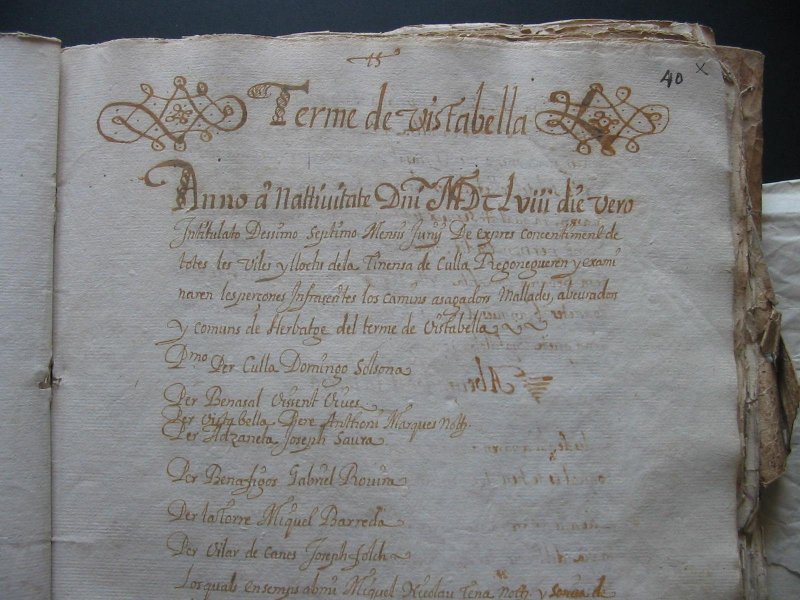 40 x
Terme de Vistabella
Anno a Nattivitate Dni MDCLviii die vero
Intitulato Dessimo septimo Mensis Junÿ De expres concentiment de
totes les Viles y llochs de la Tinensa de Culla Regonegueren y exami
naren les persones Infrasentes los camins asagadors Mallades, abeuradors
y comuns de Herbatge del terme de Vistabella
Pmo Per Culla Domingo Solsona
Per Benasal Vissent Vives
Per Vistabella Pere Anthoni Marques Noth.
Per Adzaneta Joseph Saura
Per Benafigos Gabriel Rovira
Per la Torre Miquel Barreda
Per Vilar de Canes Joseph folch
Los quals ensemps ab mi Miquel Nicolau Tena Noth. y